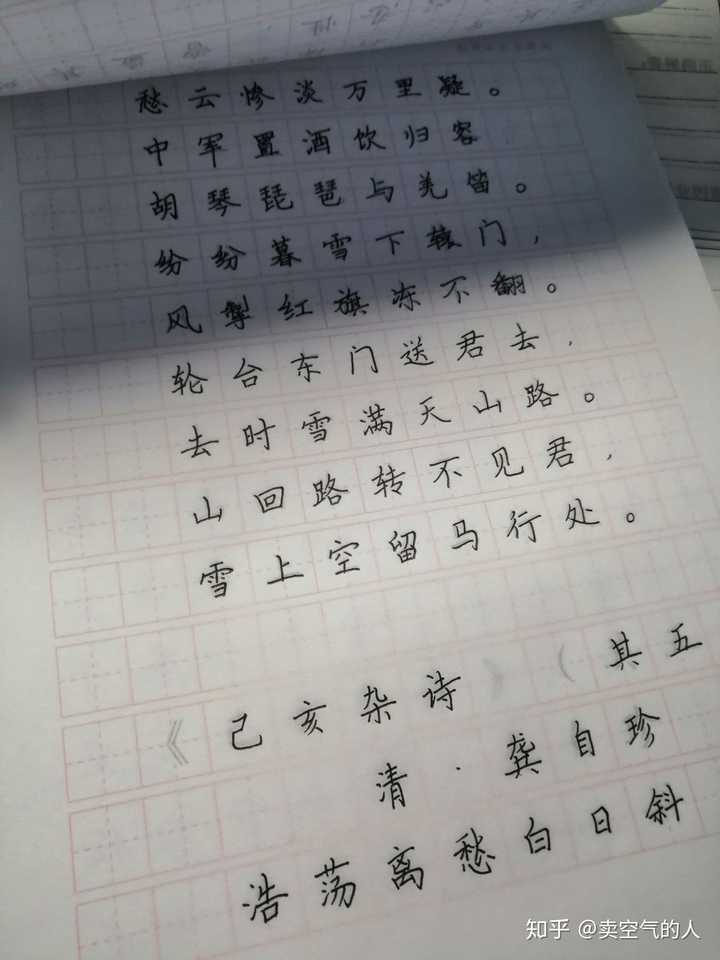 愁云惨淡万里凝。
中军置酒饮归客
胡琴琵琶与羌笛。
纷纷暮雪下辕门，
风掣红旗冻不翻。
轮台东门送君去，
去时雪满天山路。
山回路转不见君，
雪上空留马行处。
《己亥杂诗》（其五
清·龚自珍
浩荡离愁白日斜
知乎 @卖空气的人